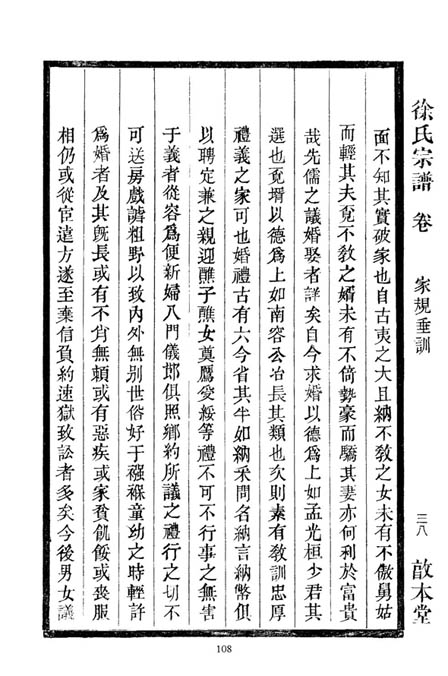 徐氏宗譜 卷 家規垂訓 三八 敆本堂
面不知其實破家也自古夷之大且納不教之女未有不傲舅姑
而輕其夫竟不教之婿未有不倚勢豪而驕其妻亦何利於富貴
哉先儒之議婚娶者詳矣自今求婚以德爲上如孟光桓少君其
選也竟壻以德爲上如南容公冶長其類也次則素有教訓忠厚
禮義之家可也婚禮古有六今省其半如納采問名納吉納幣俱
以聘定兼之親迎醮子醮女奠鴈受綏等禮不可不行事之無害
于義者從容爲便新婦入門儀節俱照鄉約所議之禮行之切不
可送房戲謔粗野以致内外無别世俗好于襁褓童幼之時輕許
爲婚者及其既長或有不肖無頼或有惡疾或家貧飢餒或喪服
相仍或從宦遠方遂至棄信負約速獄致訟者多矣今後男女議
108